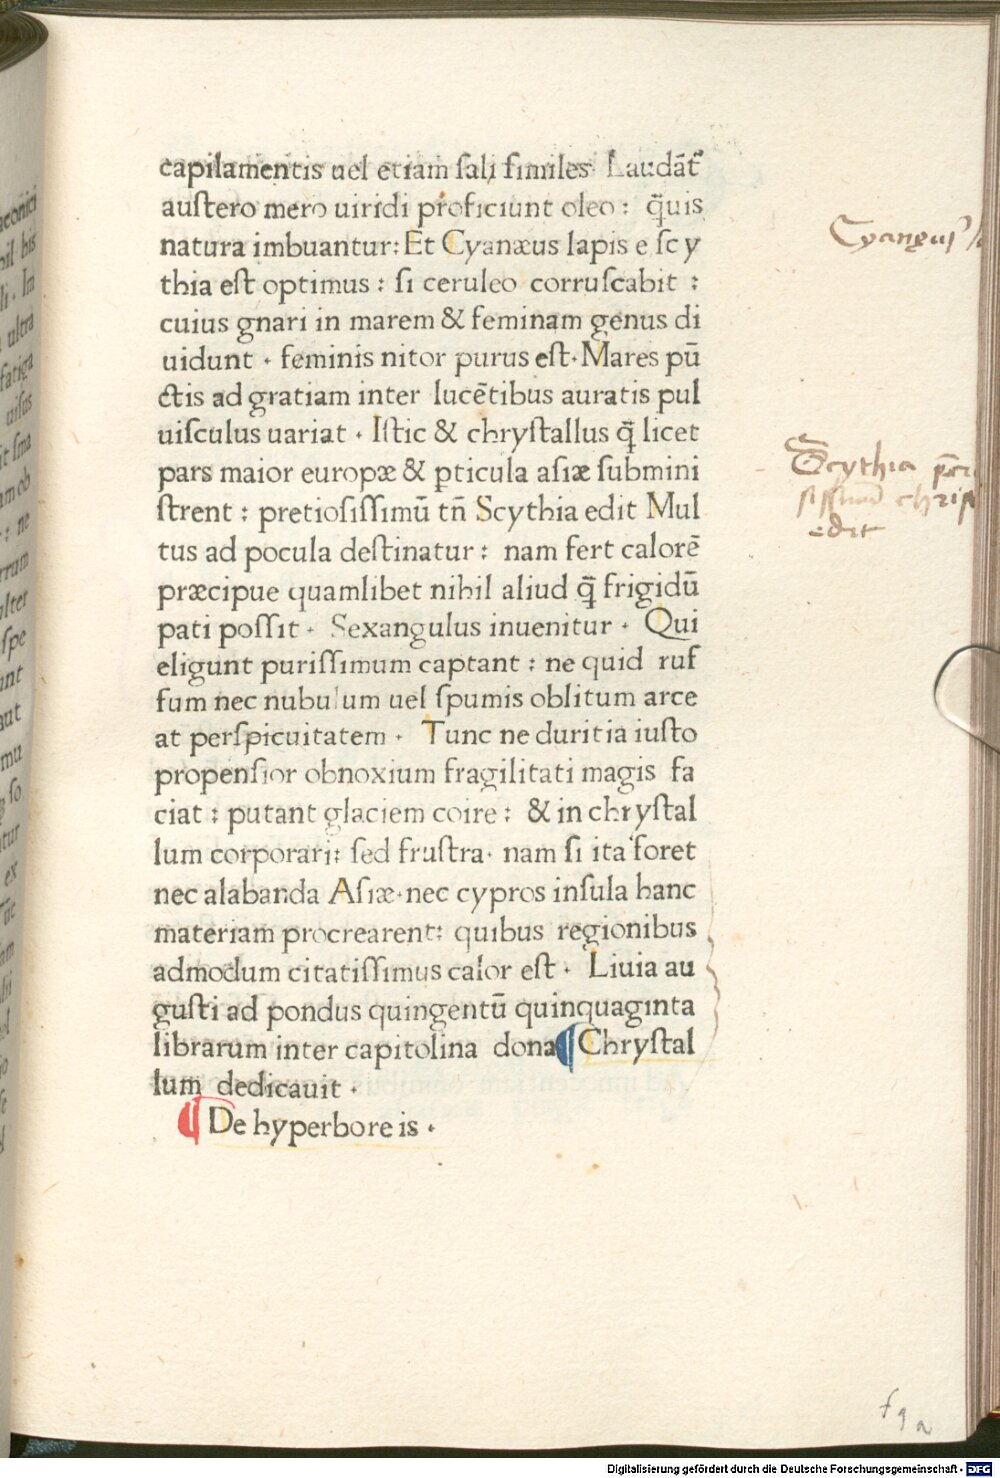 capilamentis uel etiam ſali ſimiles Laudāt᷑
auſtero mero uiridi proficiunt oleo : q̄uis
natura imbuantur: Et Cyanæus lapis e ſcy
thia eſt optimus : ſi ceruleo corruſcabit :
cuius gnari in marem & feminam genus di
uidunt · feminis nitor purus eſt· Mares pū
ctis ad gratiam inter lucētibus auratis pul
uiſculus uariat · Iſtic & chryſtallus q̄ licet
pars maior europæ & ꝑticula aſiæ ſubmini
ſtrent : pretioſiſſimū tn̄ Scythia edit Mul
tus ad pocula deſtinatur : nam fert calorē
præcipue quamlibet nihil aliud q̄ frigidū
pati poſſit · Sexangulus inuenitur · Qui
eligunt puriſſimum captant : ne quid ruf
fum nec nubulum uel ſpumis oblitum arce
at perſpicuitatem · Tunc ne duritia iuſto
propenſior obnoxium fragilitati magis fa
ciat : putant glaciem coire : & in chryſtal
lum corporari: ſed fruſtra· nam ſi ita foret
nec alabanda Aſiæ· nec cypros inſula hanc
materiam procrearent: quibus regionibus
admodum citatiſſimus calor eſt · Liuia au
guſti ad pondus quingentū quinquaginta
librarum inter capitolina dona ¶ Chryſtal
lum dedicauit ·
¶ De hyperboreis ·
Scythia
edit
Digitalisierung gefördert durch die Deutsche Forschungsgemeinschaft - DFG